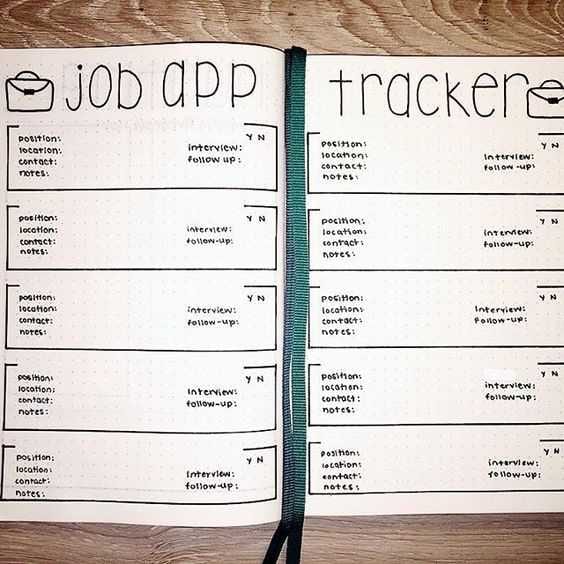 job app tracker
position: Y N
location: interview:
contact: follow up:
notes:
position: Y N
location: interview:
contact: follow-up:
notes:
position: Y N
location: interview:
contact: follow-up:
notes:
position: Y N
location: interview:
contact: follow-up:
notes:
position: Y N
location: interview:
contact: follow-up:
notes:
position: Y N
location: interview:
contact: follow-up:
notes:
position: Y N
location: interview:
contact: follow-up:
notes:
position: Y N
location: interview:
contact: follow-up:
notes:
position: Y N
location: interview:
contact: follow-up:
notes:
position: Y N
location: interview:
contact: follow-up:
notes: